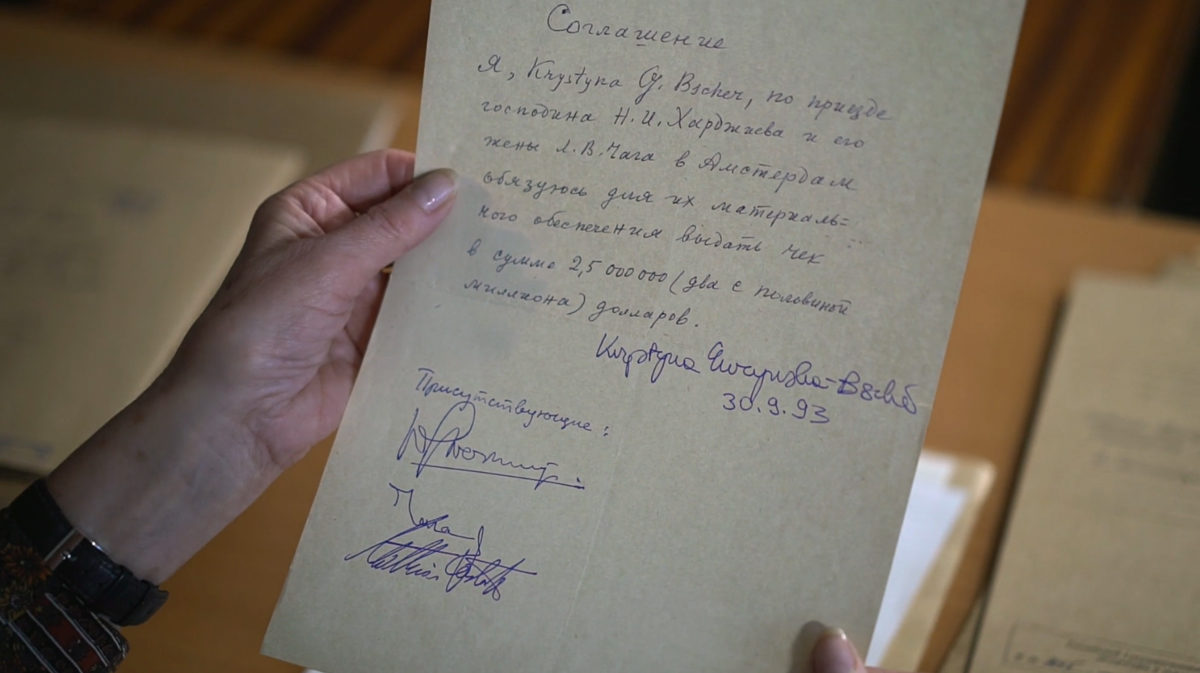 Соглашение
Я, Krystyna G. Bscher, по приезде
господина Н.И. Харджиева и его
жены Л.В. Чага в Амстердам
обязуюсь для их материаль=
ного обеспечения выдать чек
в сумме 2,5 000 000 (два с половиной
миллиона) долларов.
Krystyna
30.9.93
Присутствующие:
Чага